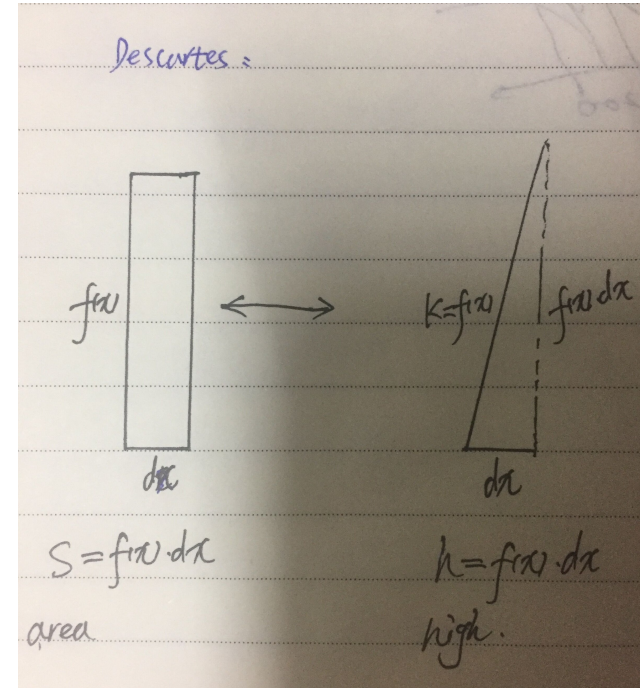 Descartes:
f(x)
K=f(x)
f(x)·dx
dx
dx
S=f(x)·dx
h=f(x)·dx
area
high.